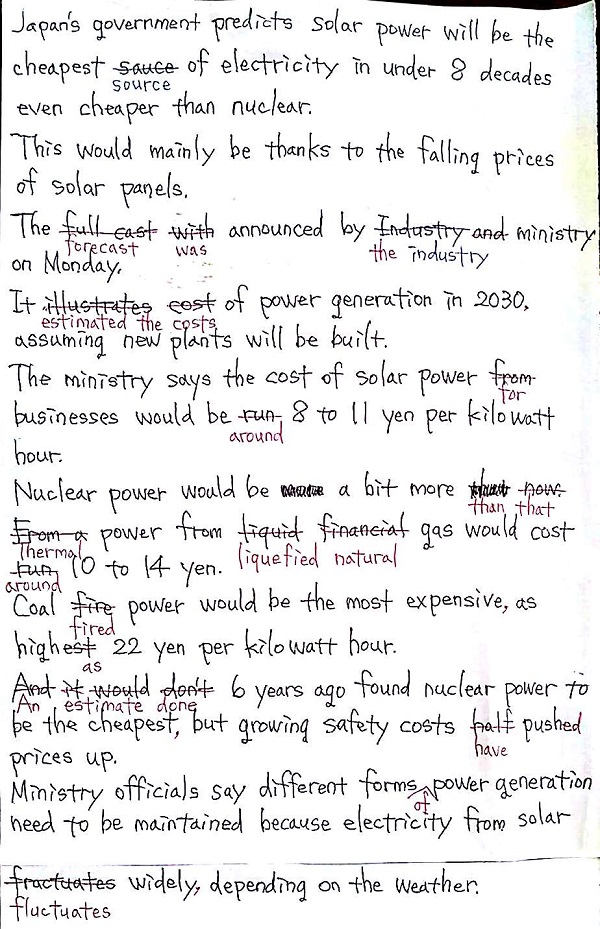 Japan's government predicts solar power will be the
cheapest sauce of electricity in under 8 decades
source
even cheaper than nuclear.
This would mainly be thanks to the falling prices
of solar panels.
The full cast with announced by Industry and ministry
forecast was the industry
on Monday.
It illustrates cost of power generation in 2030,
estimated the costs
assuming new plants will be built.
The ministry says the cost of solar power from
for
businesses would be run 8 to 11 yen per kilowatt
around
hour.
Nuclear power would be a bit more that now.
than that
From a power from liquid financial gas would cost
Thermal liquefied natural
run 10 to 14 yen.
around
Coal fire power would be the most expensive, as
fired
highest 22 yen per kilowatt hour.
as
And it would don't 6 years ago found nuclear power to
An estimate done
be the cheapest, but growing safety costs half pushed
have
prices up.
Ministry officials say different forms power generation
of
need to be maintained because electricity from solar
fractuates widely, depending on the weather.
fluctuates